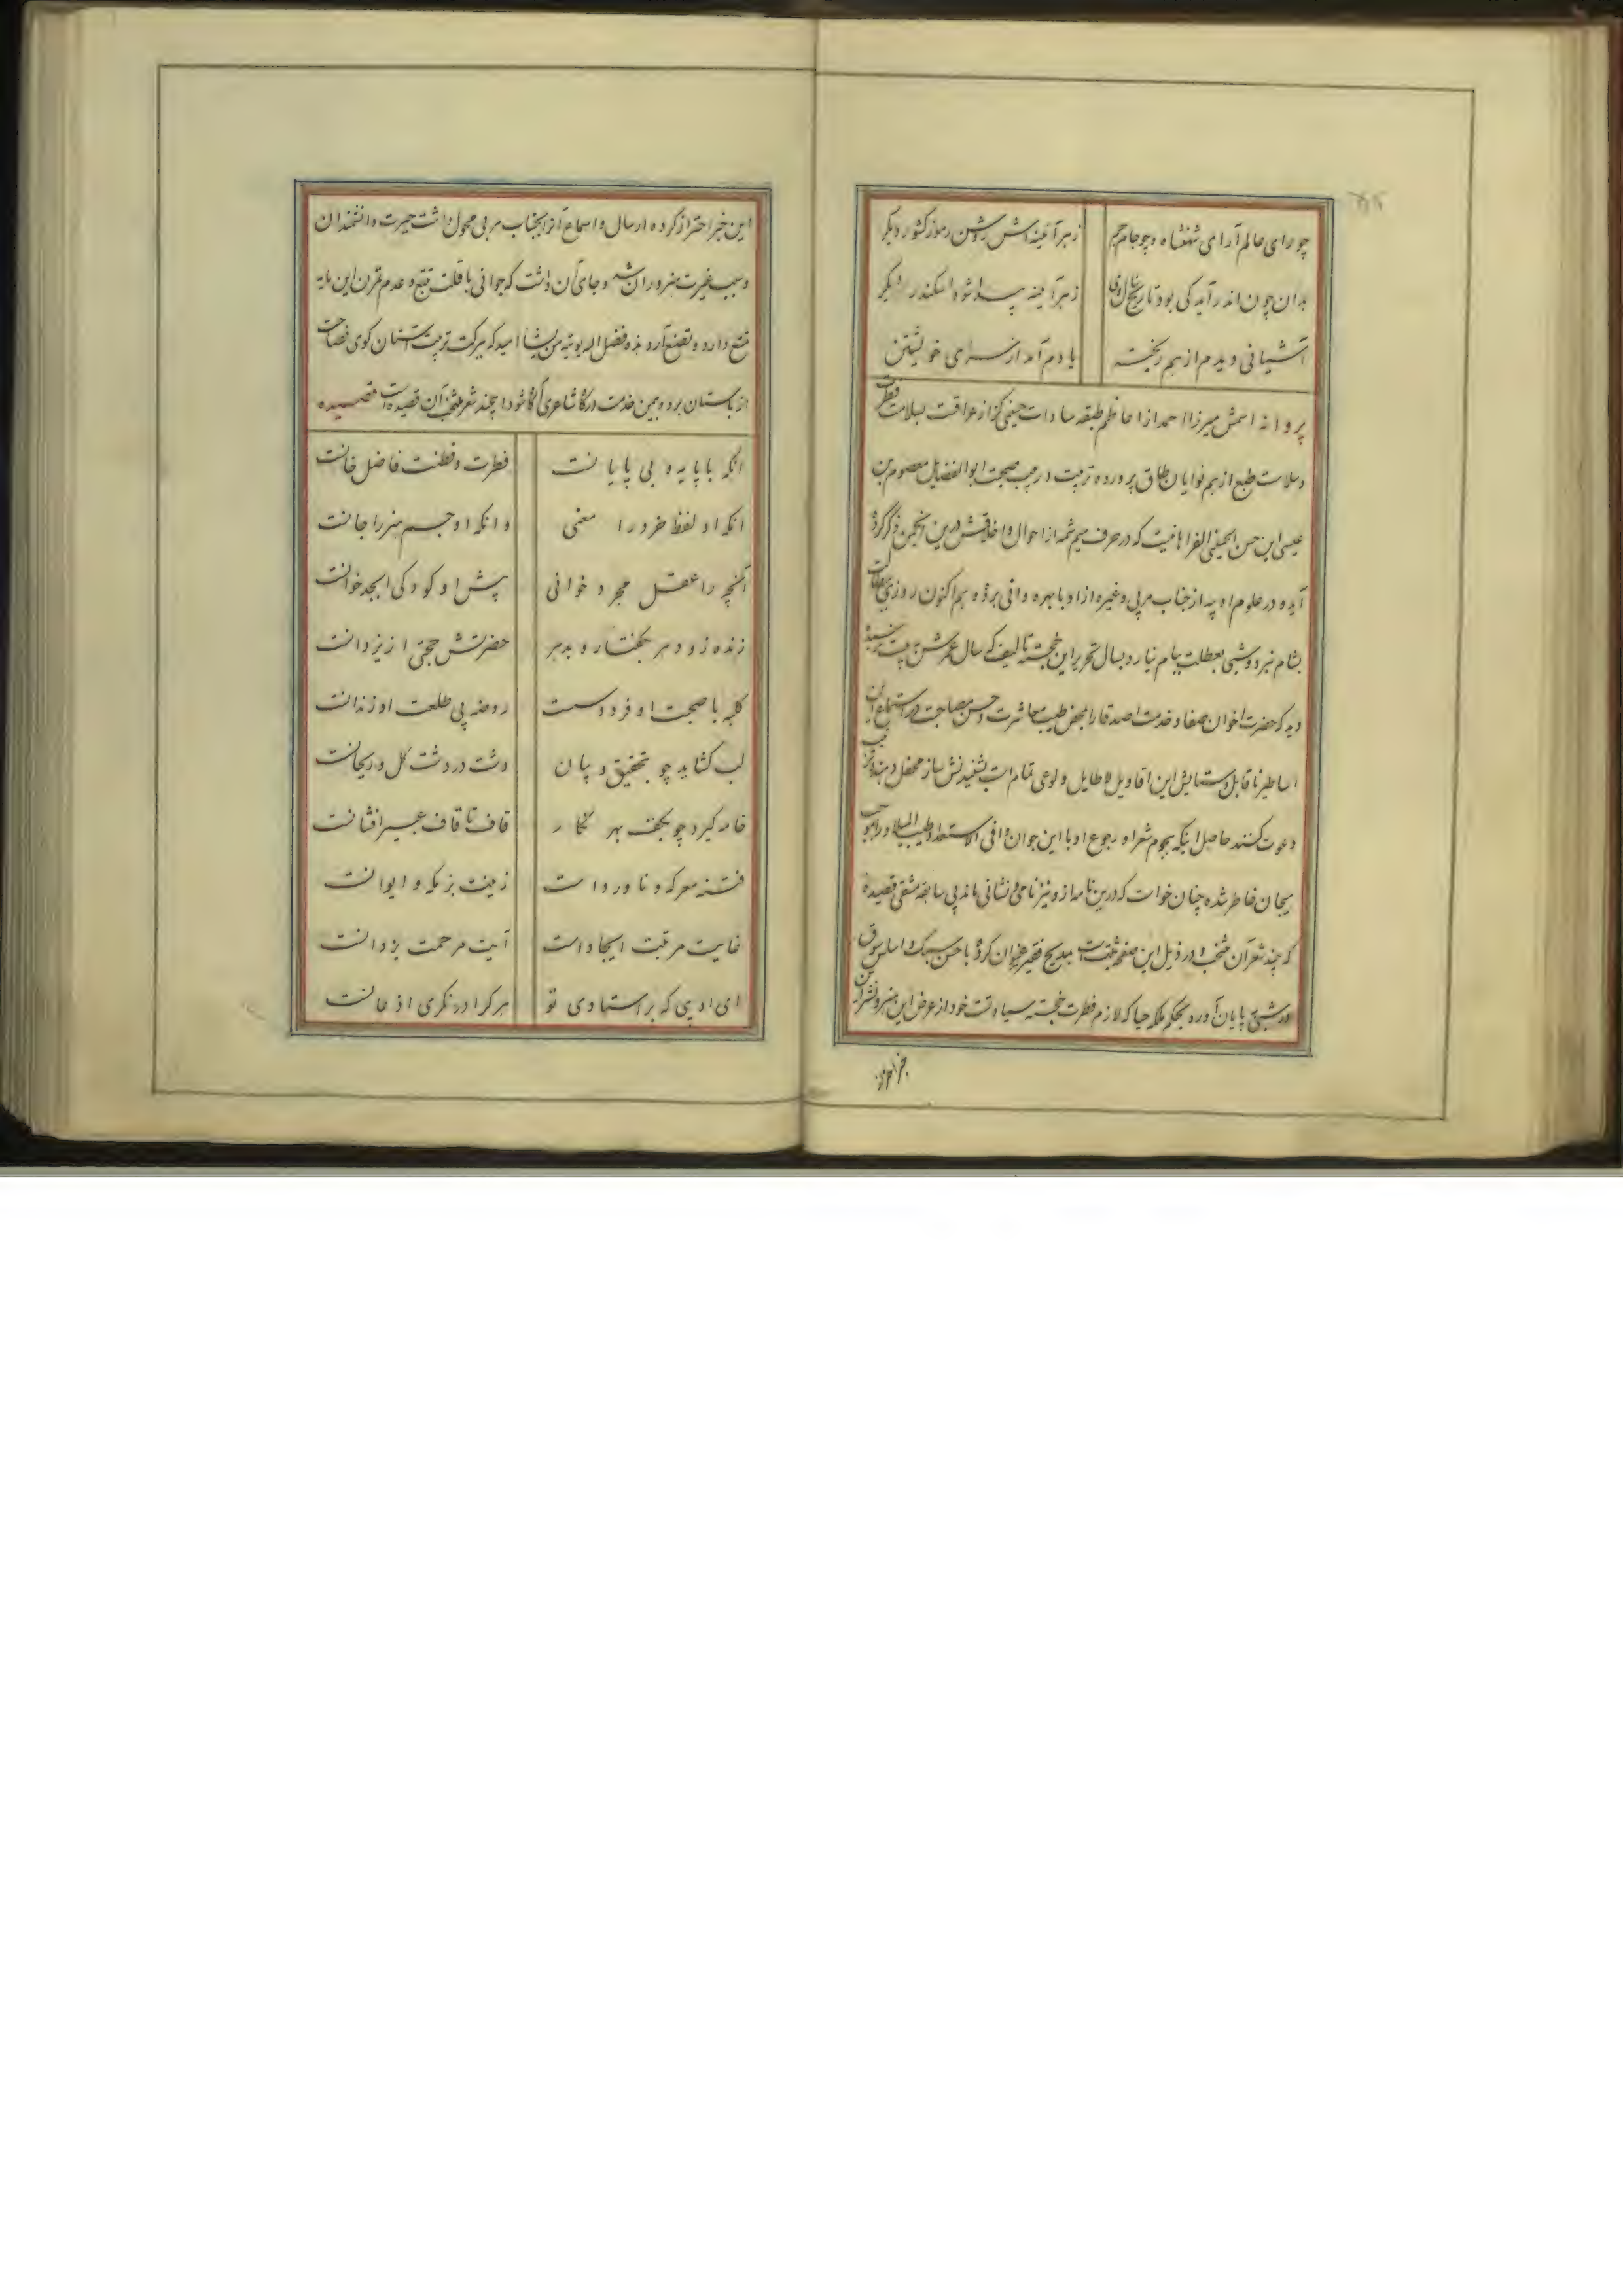 چو رای عالم آرای شهنشاه و چو جام جم زهر آئینه‌اش روشن رموز کشور دیگر
بدان چون اندر آید کی بود تاریخ زهر آئینه پیدا شود اسکندر دیگر
آشیانی دیدم از هم ریخته یادم آمد از سرای خویشتن
پروانه اسمش میرزا احمد از اعاظم طبقه سادات حسینی عراقت بسلامت فطرت
و سلامت طبع از هم نوایان طاق پرورده تربیت و صحبت ابوالفضایل معصوم بن
عیسی ابن حسن الحسینی الفراهانیست که در حرف میم شمه از احوال و اخلاقش درین انجمن ذکر کرده
آید و در علوم ادبیه از جناب مربی و غیره از ادبا بهره وافی برده هم اکنون روزی
بشام نبرد و شبی بعطلت ببام نیارد بسال تحریر این خجسته تالیف که سال عمرش به بیست نرسیده
دید که حضرت اخوان صفا و خدمت اصدقا را لمحض طیب معاشرت و حسن مصاحبت در استماع این
اساطیر ناقابل و ستایش این اقاویل لاطایل ولوعی تمام است
دعوت کنند حاصل اینکه هجوم شعرا و رجوع ادبا این جوان وافی الاستعداد طیب المیلاد را موجب
هیجان خاطر شده چنان خواست که درین نامه از و نیز نامی و نشانی ماند بی سابقه مشقی قصیده
که چند شعر آن منتخب و در ذیل این صفحه ثبت است بمدیح فقیر عنوان کرده با حسن سبک و اسلس سوق
در شبی بپایان آورده بحکم ملکه حیا که لازم فطرت خجسته سیادتست خود از عرض این هنر و نشر این
خبر احتراز
این خبر احتراز کرده ارسال و اسماع آنرا بجناب مربی محول داشت حیرت دانشمندان
و سبب غیرت هنروران شد و جای آن داشت که جوانی با قلت تتبع و عدم تمرن این مایه
تتبع دارد و تصنع آرد هذه فضل الله یوتیه من یشاء امید که ببرکت تربیت استان کوی فصاحت
از باستان برد و بیمن خدمت درگاه شاعری آگاه شود اچند شعر منتخب آن قصیده است قصیده
انکه با پایه و بی پایانست فطرت و فطنت فاضل خانست
انکه او لفظ خرد را معنی وانکه او جسم هنر را جانست
آنچه را عقل مجرد خوانی پیش او کودکی ابجدخوانست
زنده زو دهر بگفتار و بدهر حضرتش حجتی از یزدانست
کلبه با صحبت او فردوست روضه بی طلعت او زندانست
لب گشاید چو بتحقیق و بیان دشت در دشت گل و ریحانست
خامه گیرد چو بکف بهر نگار قاف تا قاف عبیر افشانست
فتنه معرکه و ناوردست زینت بزمکه و ایوانست
غایت مرتبت ایجادست آیت مرحمت یزدانست
ای ادیبی که بر استادی تو هر کرا در نگری اذعانست